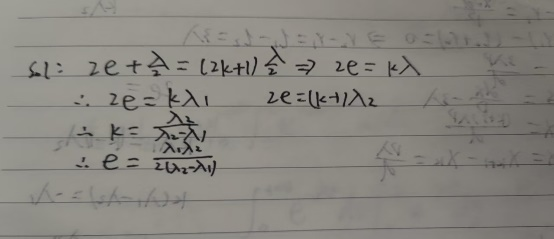 Sol: 2e + λ/2 = (2k+1) λ/2 ⇒ 2e = kλ
∴ 2e = kλ₁ 2e = (k-1)λ₂
∴ k = λ₂/(λ₂-λ₁)
∴ e = λ₁λ₂/2(λ₂-λ₁)